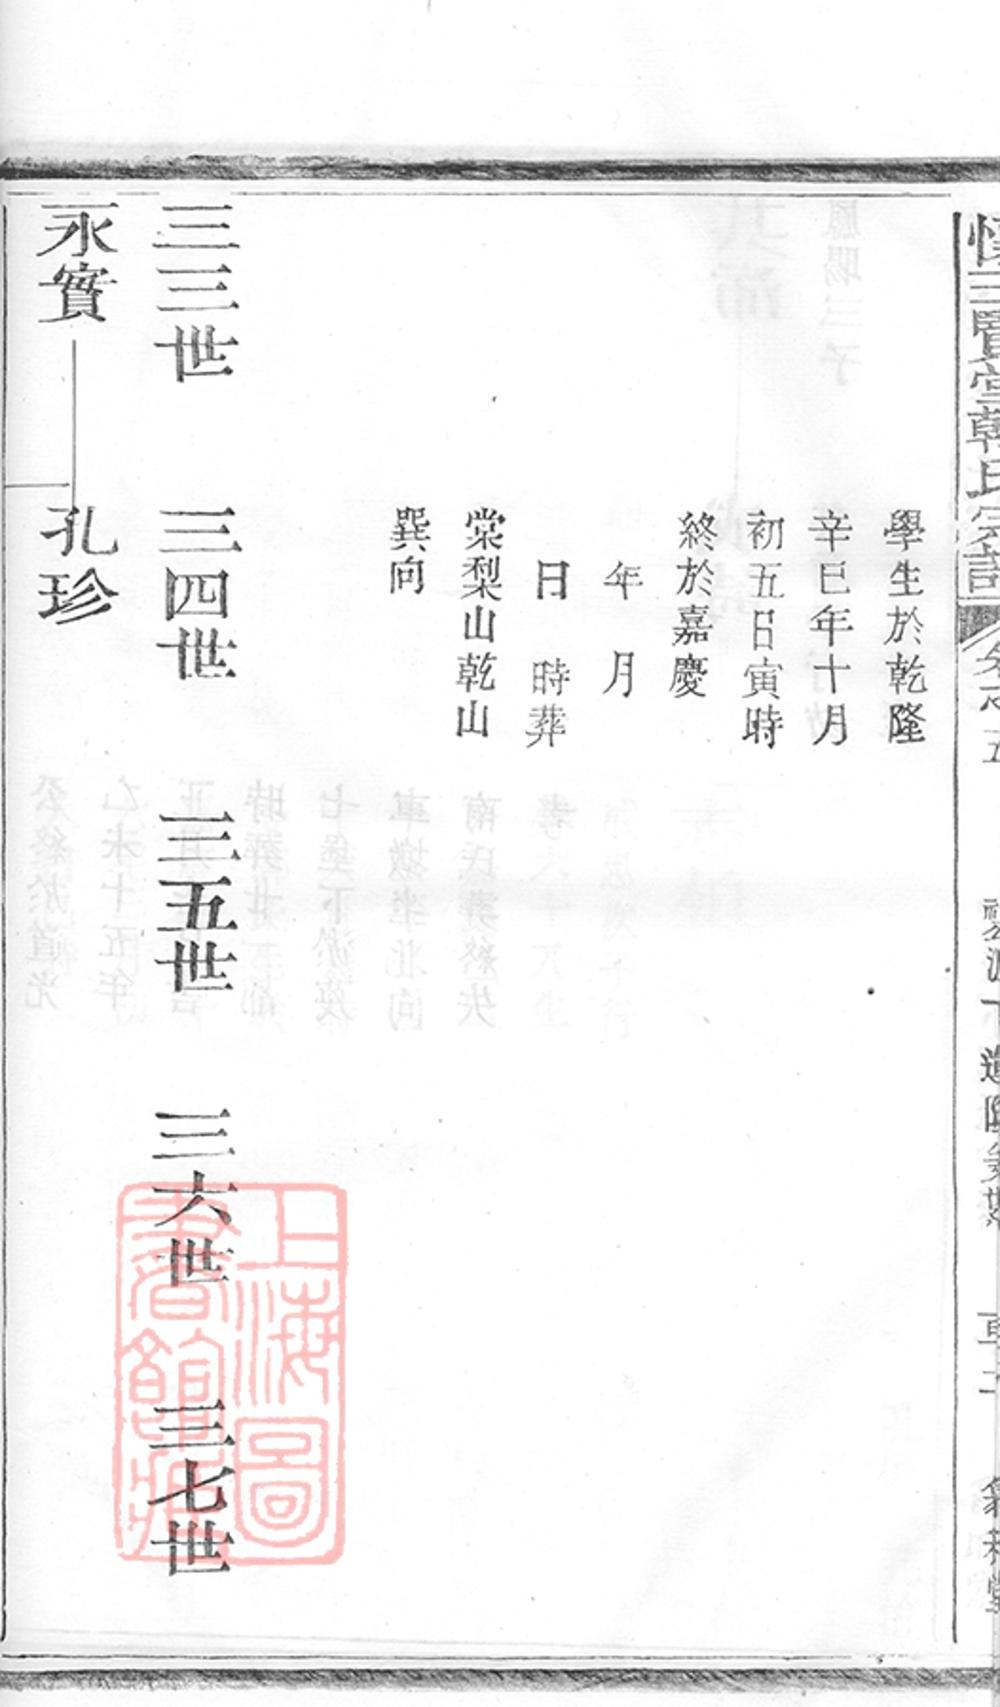 懷三賢堂韓氏宗譜
學生於乾隆
辛巳年十月
初五日寅時
終於嘉慶
年月
日時葬
棠梨山乾山
巽向
三三世 三四世 三五世 三六世 三七世
永實 孔珍
上海圖書館藏